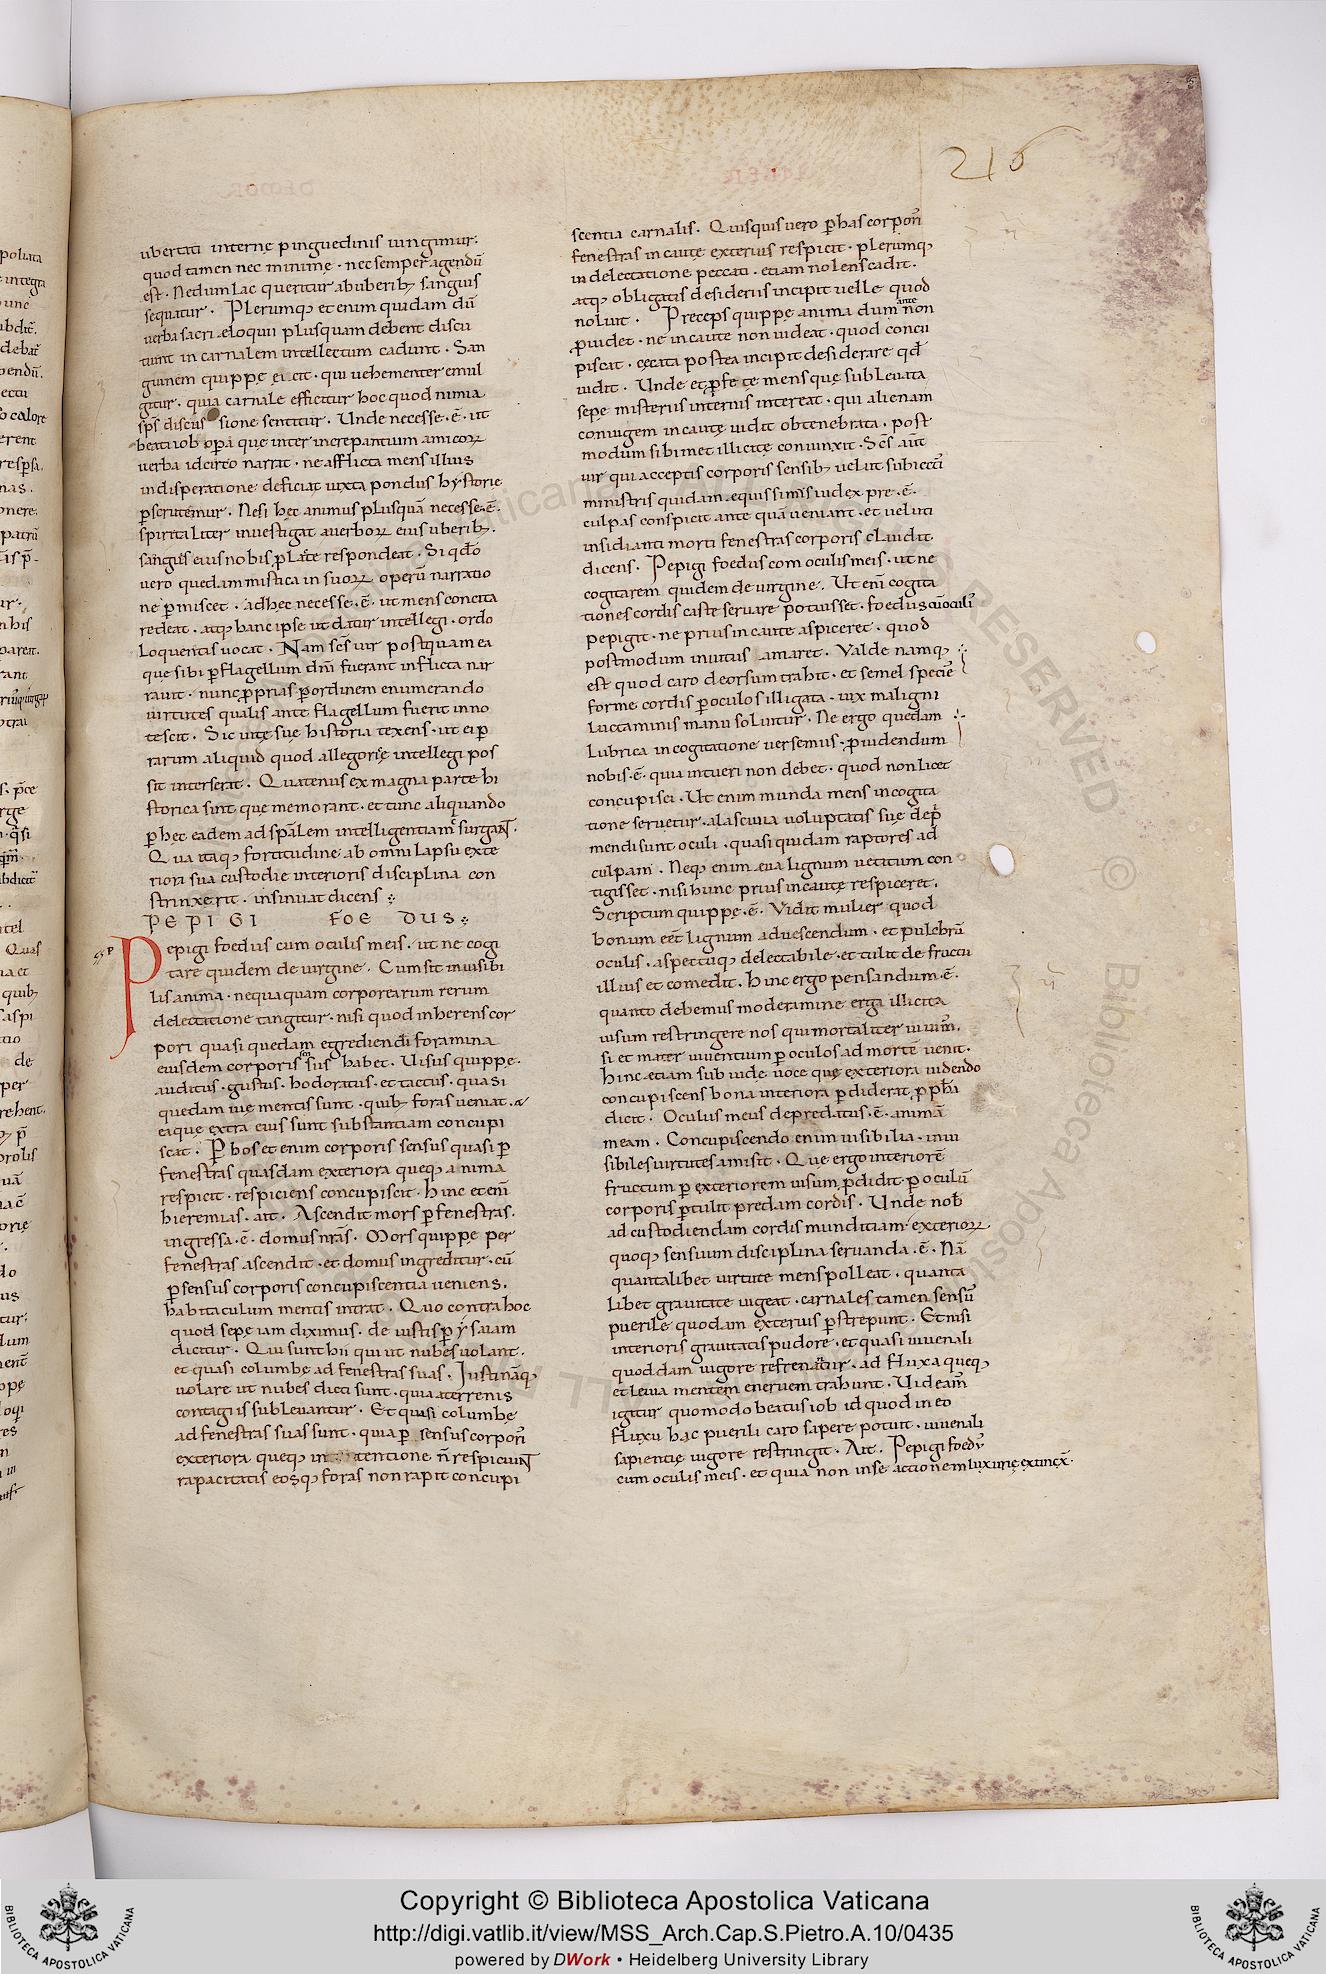 216
ubertati internę pinguedinis iungimur.
quod tamen nec minimę · nec semper agendū
est · Nedum lac queritur ab uberibꝫ sanguis
sequatur . Plerumqꝫ et enim quidam dū
verba sacri aeloquii plusquam debent discu
tiunt in carnalem intellectum cadunt · San
guinem quippę eicit · qui vehementer emul
gitur · quia carnale efficitur hoc quod nimia
sp̄s discus sione sentitur . Unde necesse · ē · ut
beati iob opera quę inter increpantium amicoꝝ
verba idcirco narrat · ne afflicta mens illius
indisperatione deficiat iuxta pondus hystorię
ꝑscrutemur . Nesi hęc animus plusquā necesse · ē ·
spiritaliter investigat averboꝝ eius uberibꝫ .
sanguis eius nobis ꝓ lacte respondeat . Si qdō
vero quedam mistica in suoꝝ operū narratio
ne ꝑmiscet · ad hęc necesse · ē · ut mens concita
redeat · atqꝫ hanc ipse ut datur intellegi · ordo
Loquentis vocat . Nam sc̄s vir postquam ea
que sibi ꝑ flagellum dn̄i fuerant inflicta nar
ravit · nunc ꝓprias ꝑ ordinem enumerando
virtutes qualis ante flagellum fuerit inno
tescit . Sic vitę suę historia texens · ut ei ꝑ
rarum aliquid quod allegorię intellegi pos
sit interserat . Quatenus ex magna parte hi
storica sint quę memorant · et tunc aliquando
ꝑ hęc eadem ad spālem intelligentiam surgant .
Qua itaqꝫ fortitudine ab omni lapsu exte
riora sua custodię interioris disciplina con
strinxerit · insinuat dicens :
PEPIGI FOE DUS :
Pepigi foedus cum oculis meis . ut ne cogi
tare quidem de virgine . Cum sit invisibi
lis anima · nequaquam corporearum rerum
delectatione tangitur · nisi quod inherens cor
pori quasi quedam egrediendi foramina
eiusdem corporis sensus habet . Visus quippe ·
auditus · gustus · hodoratus · et tactus · quasi
quedam vię mentis sunt · quibꝫ foras veniat · &
eaquę extra eius sunt substantiam concupi
scat . P hos et enim corporis sensus quasi ꝑ
fenestras quasdam exteriora queqꝫ anima
respicit · respiciens concupiscit . Hinc et enī
hieremias · ait . Ascendit mors ꝑ fenestras .
ingressa · ē · domus nrās . Mors quippe per
fenestras ascendit · et domus ingreditur · cū
ꝑ sensus corporis concupiscentia veniens .
habitaculum mentis intrat . Quo contra hoc
quod sępe iam diximus · de iustis ꝑ ysaiam
dicitur . Qui sunt hii qui ut nubes volant .
et quasi columbę ad fenestras suas . Iusti nāqꝫ
volare ut nubes dicti sunt · quia a terrenis
contagiis sublevantur . Et quasi columbę
ad fenestras suas sunt · quia ꝑ sensus corporis
exteriora queqꝫ in tentione ñ respiciunt
rapacitatis eosqꝫ foras non rapit concupi
scentia carnalis . Quisquis vero ꝑ has corporis
fenestras incaute exterius respicit · plerumqꝫ
in delectatione peccati · etiam nolens cadit .
atqꝫ obligatis desideriis incipit velle quod
noluit . Preceps quippe anima dum ante non
ꝓvidet · ne incaute non videat · quod concu
piscat · cęcata postea incipit desiderare qd̄
vidit . Unde et ꝓfe tę mens quę sublevata
sępe misteriis internis intererat · qui alienam
coniugem incautę vidit obtenebrata · post
modum sibimet illicitę coniunxit . Sc̄s aūt
vir qui acceptis corporis sensibꝫ velut subiectis
ministris quidam equissimus iudex pre · ē ·
culpas conspicit ante quā veniant · et veluti
insidianti morti fenestras corporis claudit
dicens . Pepigi foedus com oculis meis · ut ne
cogitarem quidem de virgine . Ut enī cogita
tiones cordis caste servare potuisset · foedus cū oculis
pepigit · ne prius incaute aspiceret · quod
postmodum invitus amaret . Valde namqꝫ
est quod caro deorsum trahit · et semel species
forme cordis ꝑ oculos illigata · vix maligni
luctaminis manu solvitur . Ne ergo quedam
lubrica in cogitatione versemus · ꝓvidendum
nobis · ē · quia intueri non debet · quod non licet
concupisci . Ut enim munda mens in cogita
tione servetur · alascivia voluptatis suę depri
mendi sunt oculi · quasi quidam raptores ad
culpam . Neqꝫ enim eva lignum vetitum con
tigisset · nisi hunc prius incautę respiceret .
Scriptum quippe · ē · Vidit mulier quod
bonum eēt lignum advescendum · et pulchrū
oculis · aspectuqꝫ delectabile · et tulit de fructu
illius et comedit . Hinc ergo pensandum · ē ·
quanto debemus moderamine erga illicita
visum restringere nos qui mortaliter vivim̄ .
si et mater viventium ꝑ oculos ad mortē venit .
Hinc etiam sub iudę voce quę exteriora videndo
concupiscens bona interiora ꝑdiderat ꝑ ꝓphā
dicit . Oculus meus depredatus · ē · animā
meam . Concupiscendo enim visibilia · invi
sibiles virtutes amisit . Que ergo interiorē
fructum ꝑ exteriorem visum ꝑdidit · ꝑ oculū
corporis ꝑtulit predam cordis . Unde nob̄
ad custodiendam cordis munditiam · exterioꝝ
quoqꝫ sensuum disciplina servanda · ē · Nā
quantalibet virtute mens polleat · quanta
libet gravitate vigeat · carnales tamen sensus
puerile quodam exterius ꝑstrepunt . Et nisi
interioris gravitatis pudore · et quasi iuvenali
quoddam vigore refrenatur · ad fluxa queqꝫ
et levia mentem enervem trahunt . Videam̄
igitur quomodo beatus iob id quod in eo
fluxu hac puerili caro sapere potuit · iuvenali
sapientię vigore restringit . Ait . Pepigi foedꝰ
cum oculis meis · et quia non in se actionem luxurię extinx̄ .
Copyright © Biblioteca Apostolica Vaticana
http://digi.vatlib.it/view/MSS_Arch.Cap.S.Pietro.A.10/0435
powered by DWork • Heidelberg University Library